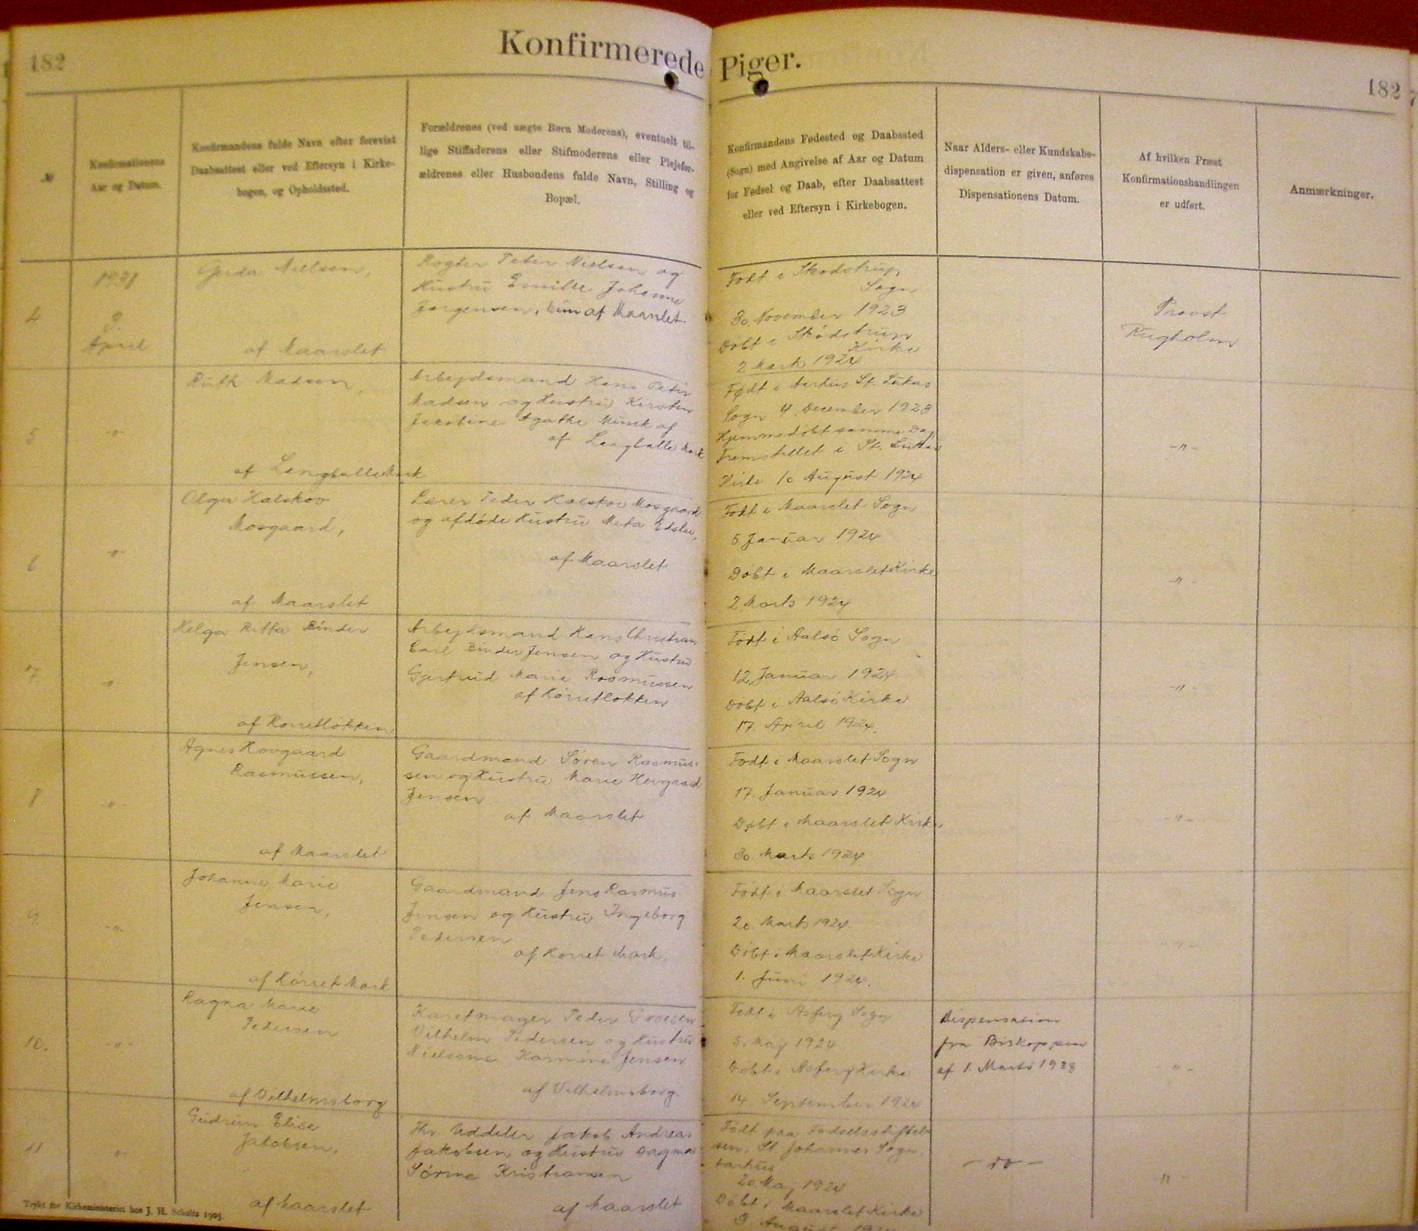 182
Konfirmerede
Piger.
182
№
Konfirmationens
Aar og Datum.
Konfirmandens fulde Navn efter forevist
Daabsattest eller ved Eftersyn i Kirke-
bogen, og Opholdssted.
Forældrenes (ved uægte Børn Moderens), eventuelt til-
lige Stiffaderens eller Stifmoderens eller Plejefor-
ældrenes eller Husbondens fulde Navn, Stilling og
Bopæl.
Konfirmandens Fødested og Daabssted
(Sogn) med Angivelse af Aar og Datum
for Fødsel og Daab, efter Daabsattest
eller ved Eftersyn i Kirkebogen.
Naar Alders- eller Kundskabs-
dispensation er given, anføres
Dispensationens Datum.
Af hvilken Præst
Konfirmationshandlingen
er udført.
Anmærkninger.
4
April
Gerda Nielsen,
af Maarslet
Røgter Peter Nielsen og
Hustru Emilie Johanne
Jørgensen, af Maarslet.
Født i Skødstrup
Sogn
30. November 1923
Døbt i Skødstrup
Kirke
2 Marts 1924
Provst
Rugholm
5
-"-
Ruth Madsen,
af Langballe Mark
Arbejdsmand Hans Peter
Madsen og Hustru Kirsten
Jakobine Agathe Munk af
af Langballe Mark
Født i Aarhus St. Lukas
Sogn 4. December 1923
Hjemmedøbt samme Dag
Fremstillet i St. Lukas
Kirke 10 August 1924
-"-
6
-"-
Olga Halskov
Mosgaard,
af Maarslet
Lærer Peder Halskov Mosgaard
og afdøde Hustru Meta
af Maarslet
Født i Maarslet Sogn
5. Januar 1924
Døbt i Maarslet Kirke
2. Marts 1924
-"-
7
-"-
Helga Ritta Binder
Jensen,
af Hørretløkken
Arbejdsmand Hans Christian
Carl Binder Jensen og Hustru
Gjertrud Marie Rasmussen
af Hørretløkken
Født i Aalsø Sogn
12. Januar 1924
Døbt i Aalsø Kirke
17. April 1924.
-"-
8
-"-
Agnes Hovgaard
Rasmussen,
af Maarslet
Gaardmand Søren Rasmus-
sen og Hustru Marie Hovgaard
Jensen
af Maarslet
Født i Maarslet Sogn
17. Januar 1924
Døbt i Maarslet Kirke
30. Marts 1924
-"-
9
-"-
Johanne Marie
Jensen,
af Hørret Mark
Gaardmand Jens Rasmus
Jensen og Hustru Ingeborg
Pedersen
af Hørret Mark.
Født i Maarslet Sogn
Marts 1924
Døbt i Maarslet Kirke
1. Juni 1924.
-"-
10.
-"-
Ragna Marie
Pedersen
af Vilhelmsborg
Karetmager Peder
Vilhelm Pedersen og Hustru
Nielsine Karmine Jensen
af Vilhelmsborg.
Født i Asferg Sogn
5. Maj 1924
Døbt i Asferg Kirke
14 September 1924
Dispensation
fra Biskoppen
af 1. Marts 1938
-"-
11
-"-
Gudrun Elise
Jakobsen,
af Maarslet
Uddeler Jakob Andreas
Jakobsen og Hustru Dagmar
Sørine Kristiansen
af Maarslet
Født paa Fødselsstiftel-
sen, St. Johannes Sogn,
Aarhus
20 Maj 1924
Døbt i Maarslet Kirke
August 1924
- do -
-"-
Trykt for Kirkeministeriet hos J. H. Schultz 1905